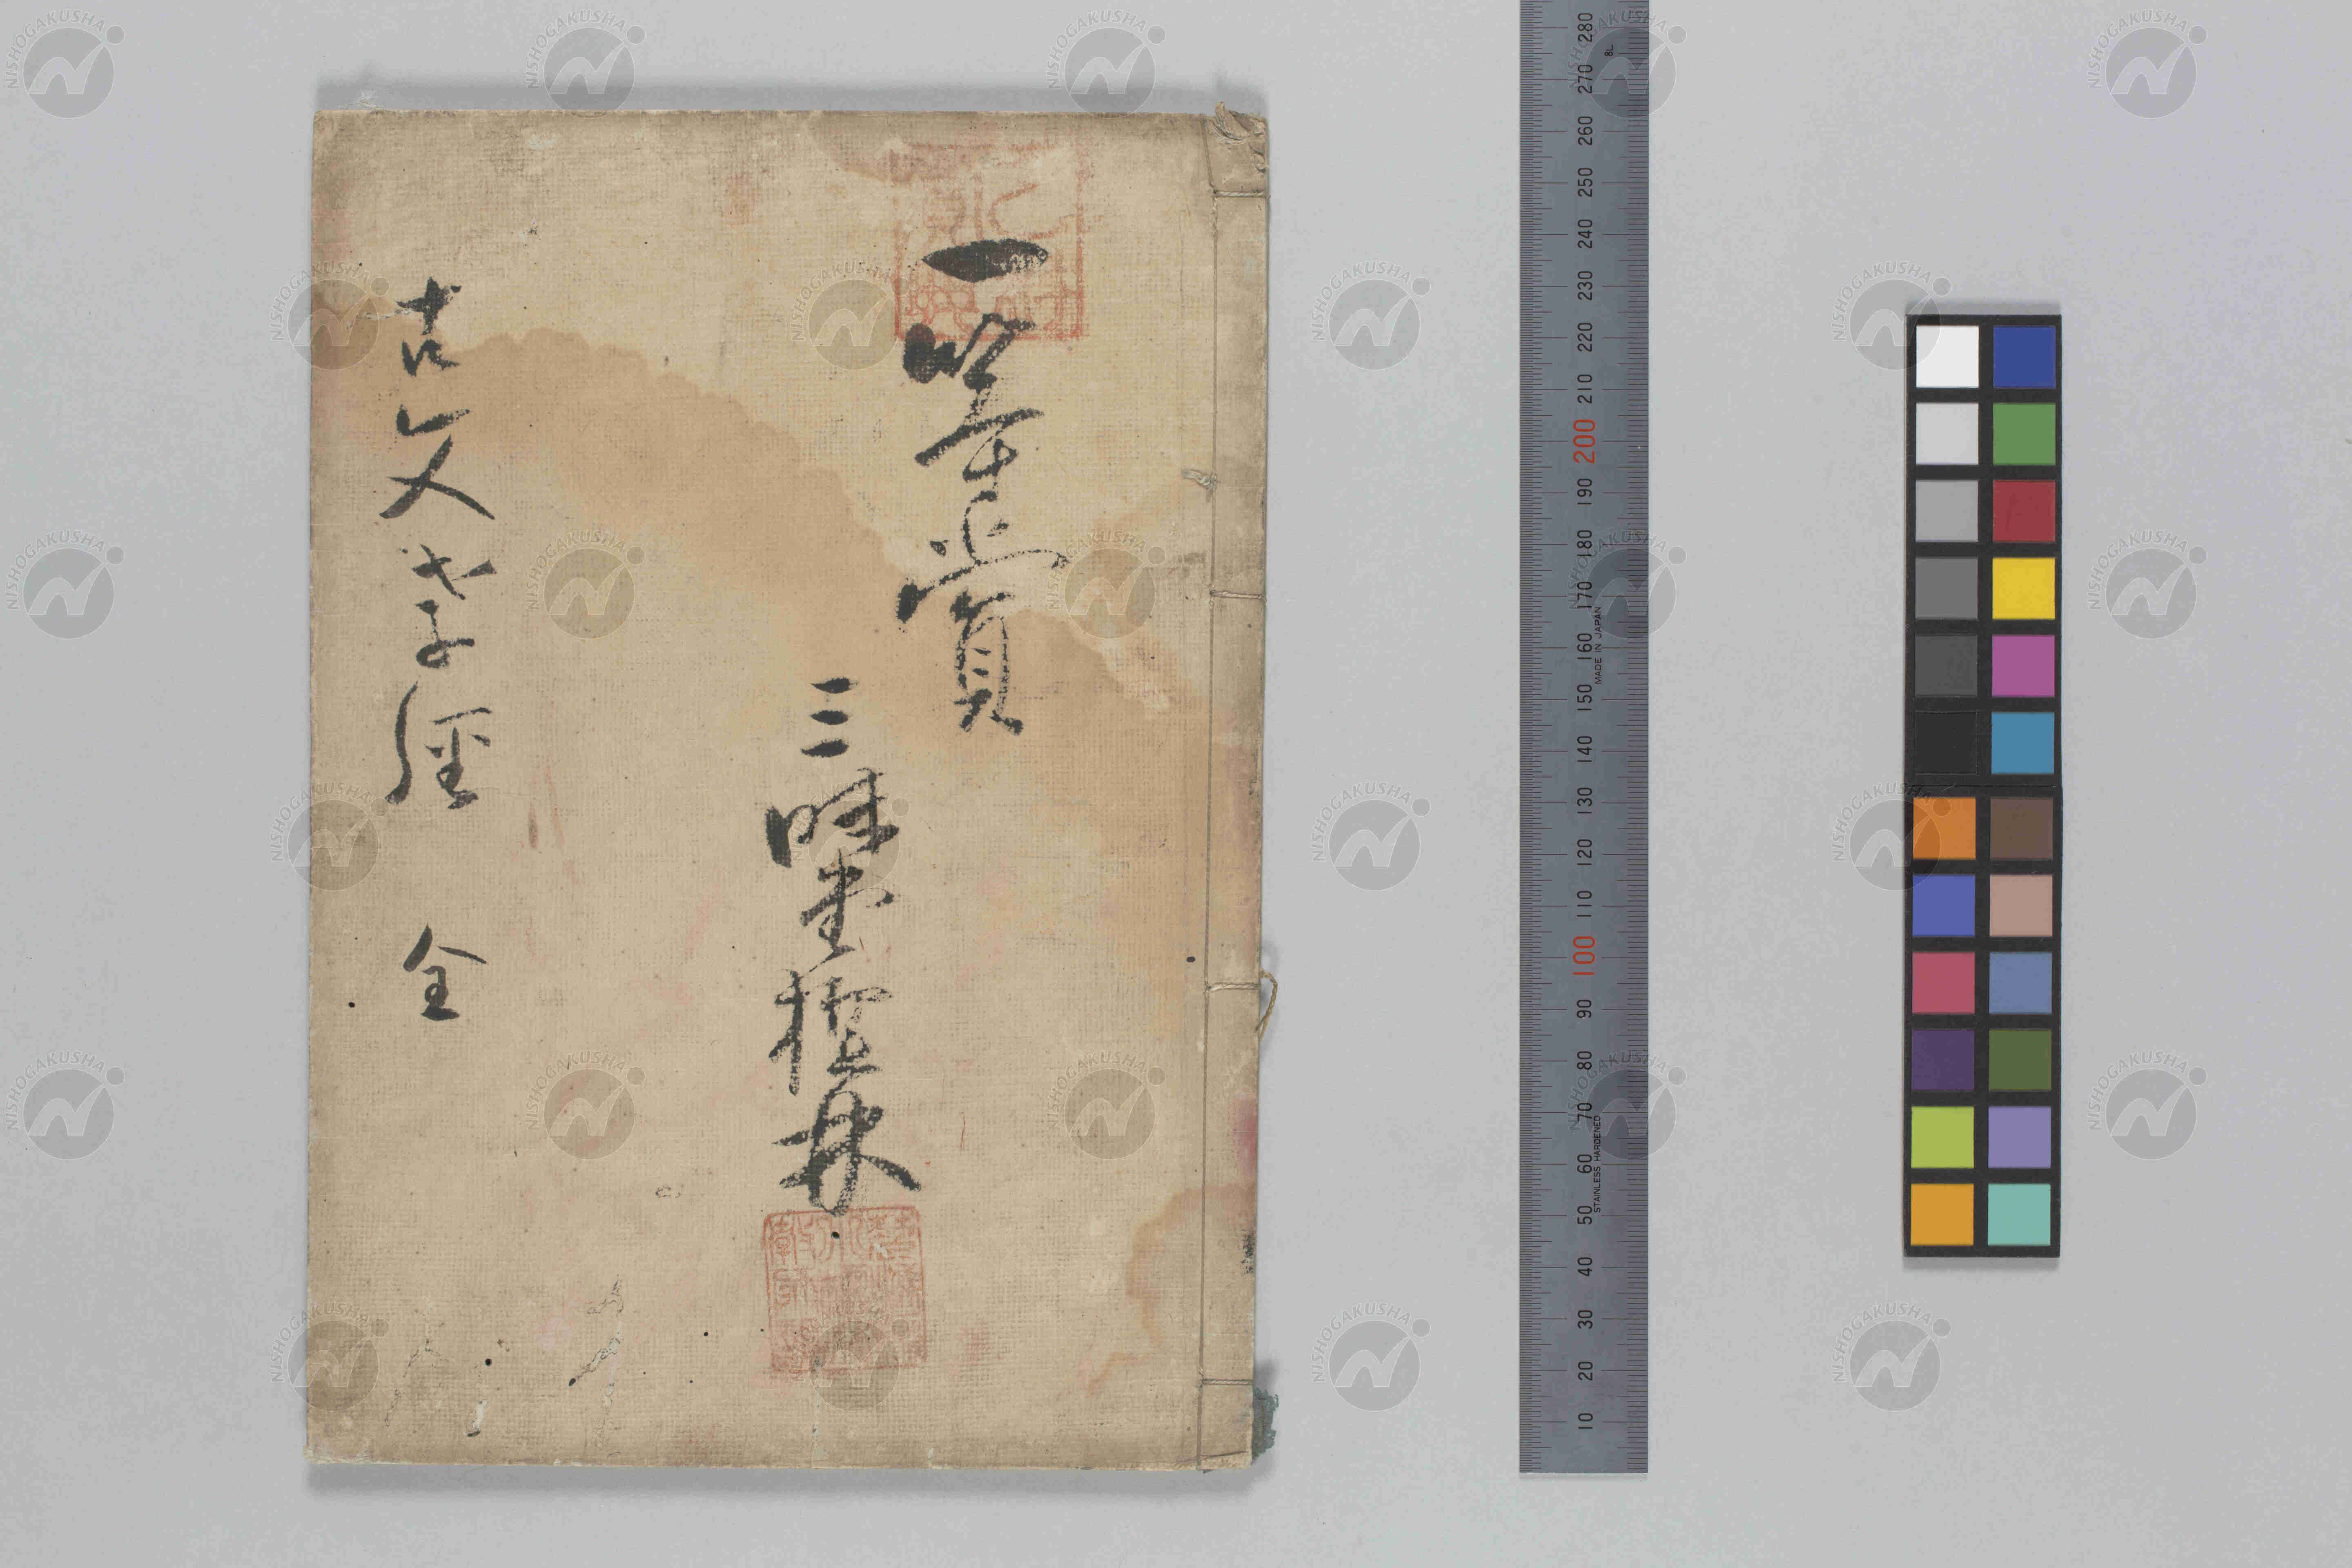 一筆畫賞
三昧堂檀林
古文孝經 全
280
270
260
250
240
230
220
210
200
190
180
170
160
150
140
130
120
110
100
90
80
70
60
50
40
30
20
10
MADE IN JAPAN
STAINLESS HARDENED
NISHOGAKUSHA